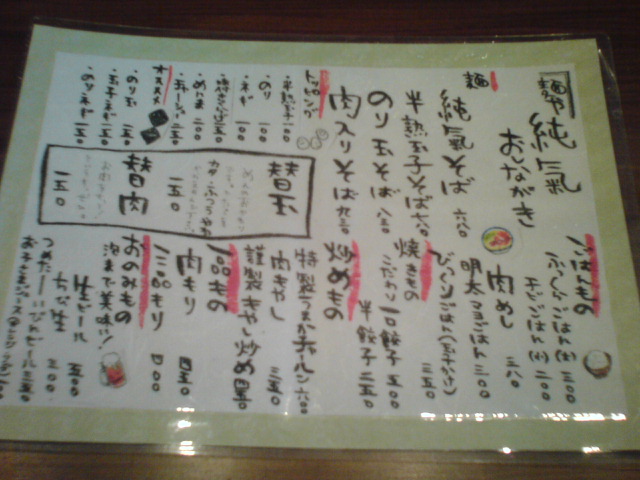 麺や 純氣
おしながき
麺
純氣そば 六六〇
半熟玉子そば 七六〇
のり玉そば 八六〇
肉入りそば 九三〇
トッピング
・半熟玉子 一〇〇
・のり 一〇〇
・ネギ 一〇〇
・めんま 二〇〇
オススメ
・のり玉 二五〇
・玉子ネギ 一五〇
・のりネギ 一五〇
替玉
カタ・ふつう・やわ
一五〇
替肉
一五〇
ごはんもの
ふっくらごはん(大) 三〇〇
チビごはん(小) 二〇〇
肉めし 三六〇
明太マヨごはん 三〇〇
びっくりごはん 三五〇
焼きもの
こだわり一口餃子 五〇〇
半餃子 三五〇
炒めもの
特製うまかチャーハン 六〇〇
肉もやし 三五〇
謹製もやし炒め
一品もの
肉もり 四五〇
三品もり 四〇〇
おのみもの
泡まで美味い!
生ビール 五〇〇
ちび生 三〇〇
つめた〜いびんビール 五五〇